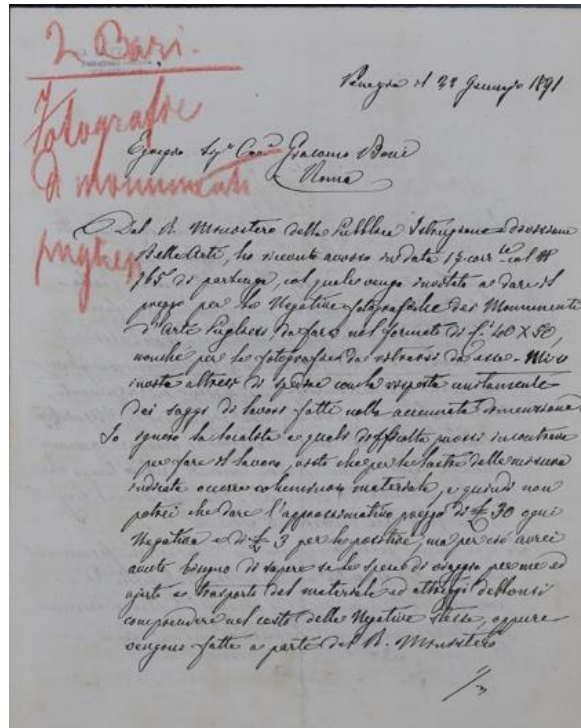 2 Bari.
Fotografie
di monumenti
pugliesi
Venezia il 22 Gennajo 1891
Egregio Sigr Cavr Giacomo Boni
Roma
Dal R. Ministero della Pubblica Istruzione divisione
Belle Arti, ho ricevuto avviso in data 17 corrte col N
765 di partenza, col quale vengo invitato a dare il
prezzo per le Negative fotografiche dei Monumenti
d'Arte Pugliesi, da farsi nel formato di 40 X 50,
nonché per le fotografie da ritrarsi da esse. Mi si
invita altresì di spedire con la risposta unitamente
dei saggi di lavori fatti nella accennata dimensione
Io ignoro la località e quali difficoltà possi incontrare
per fare il lavoro, visto che per le lastre della misura
indicata occorre voluminoso materiale, e quindi non
potrei che dare l'approssimativo prezzo di £ 30 ogni
Negativa e di £ 3 per le positive, ma perciò avrei
avuto bisogno di sapere se le spese di viaggio per me ed
ajuto e trasporto del materiale ed attrezzi debbonsi
comprendere nel costo delle Negative stesse, oppure
vengono fatte a parte dal R. Ministero